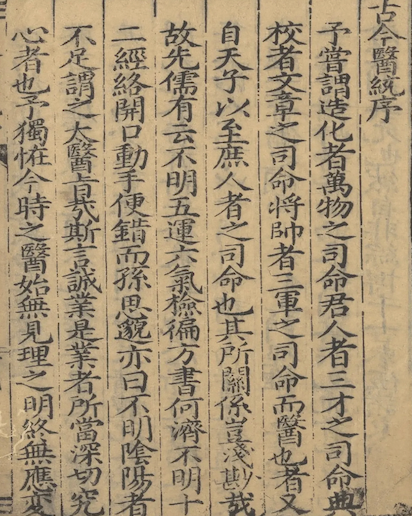 古今醫統序
予嘗謂造化者萬物之司命君人者三才之司命典
校者文章之司命將帥者三軍之司命而醫也者又
自天子以至庶人者之司命也其所關係豈淺尠哉
故先儒有云不明五運六氣檢徧方書何濟不明十
二經絡開口動手便錯而孫思邈亦曰不明陰陽者
不足謂之太醫旨哉斯言誠業是業者所當深切究
心者也予獨恠今時之醫始無見理之明終無應變